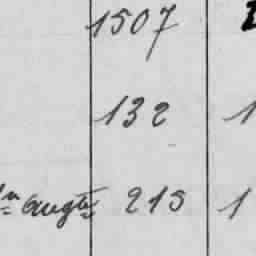 1507
132 1
augte 215 1